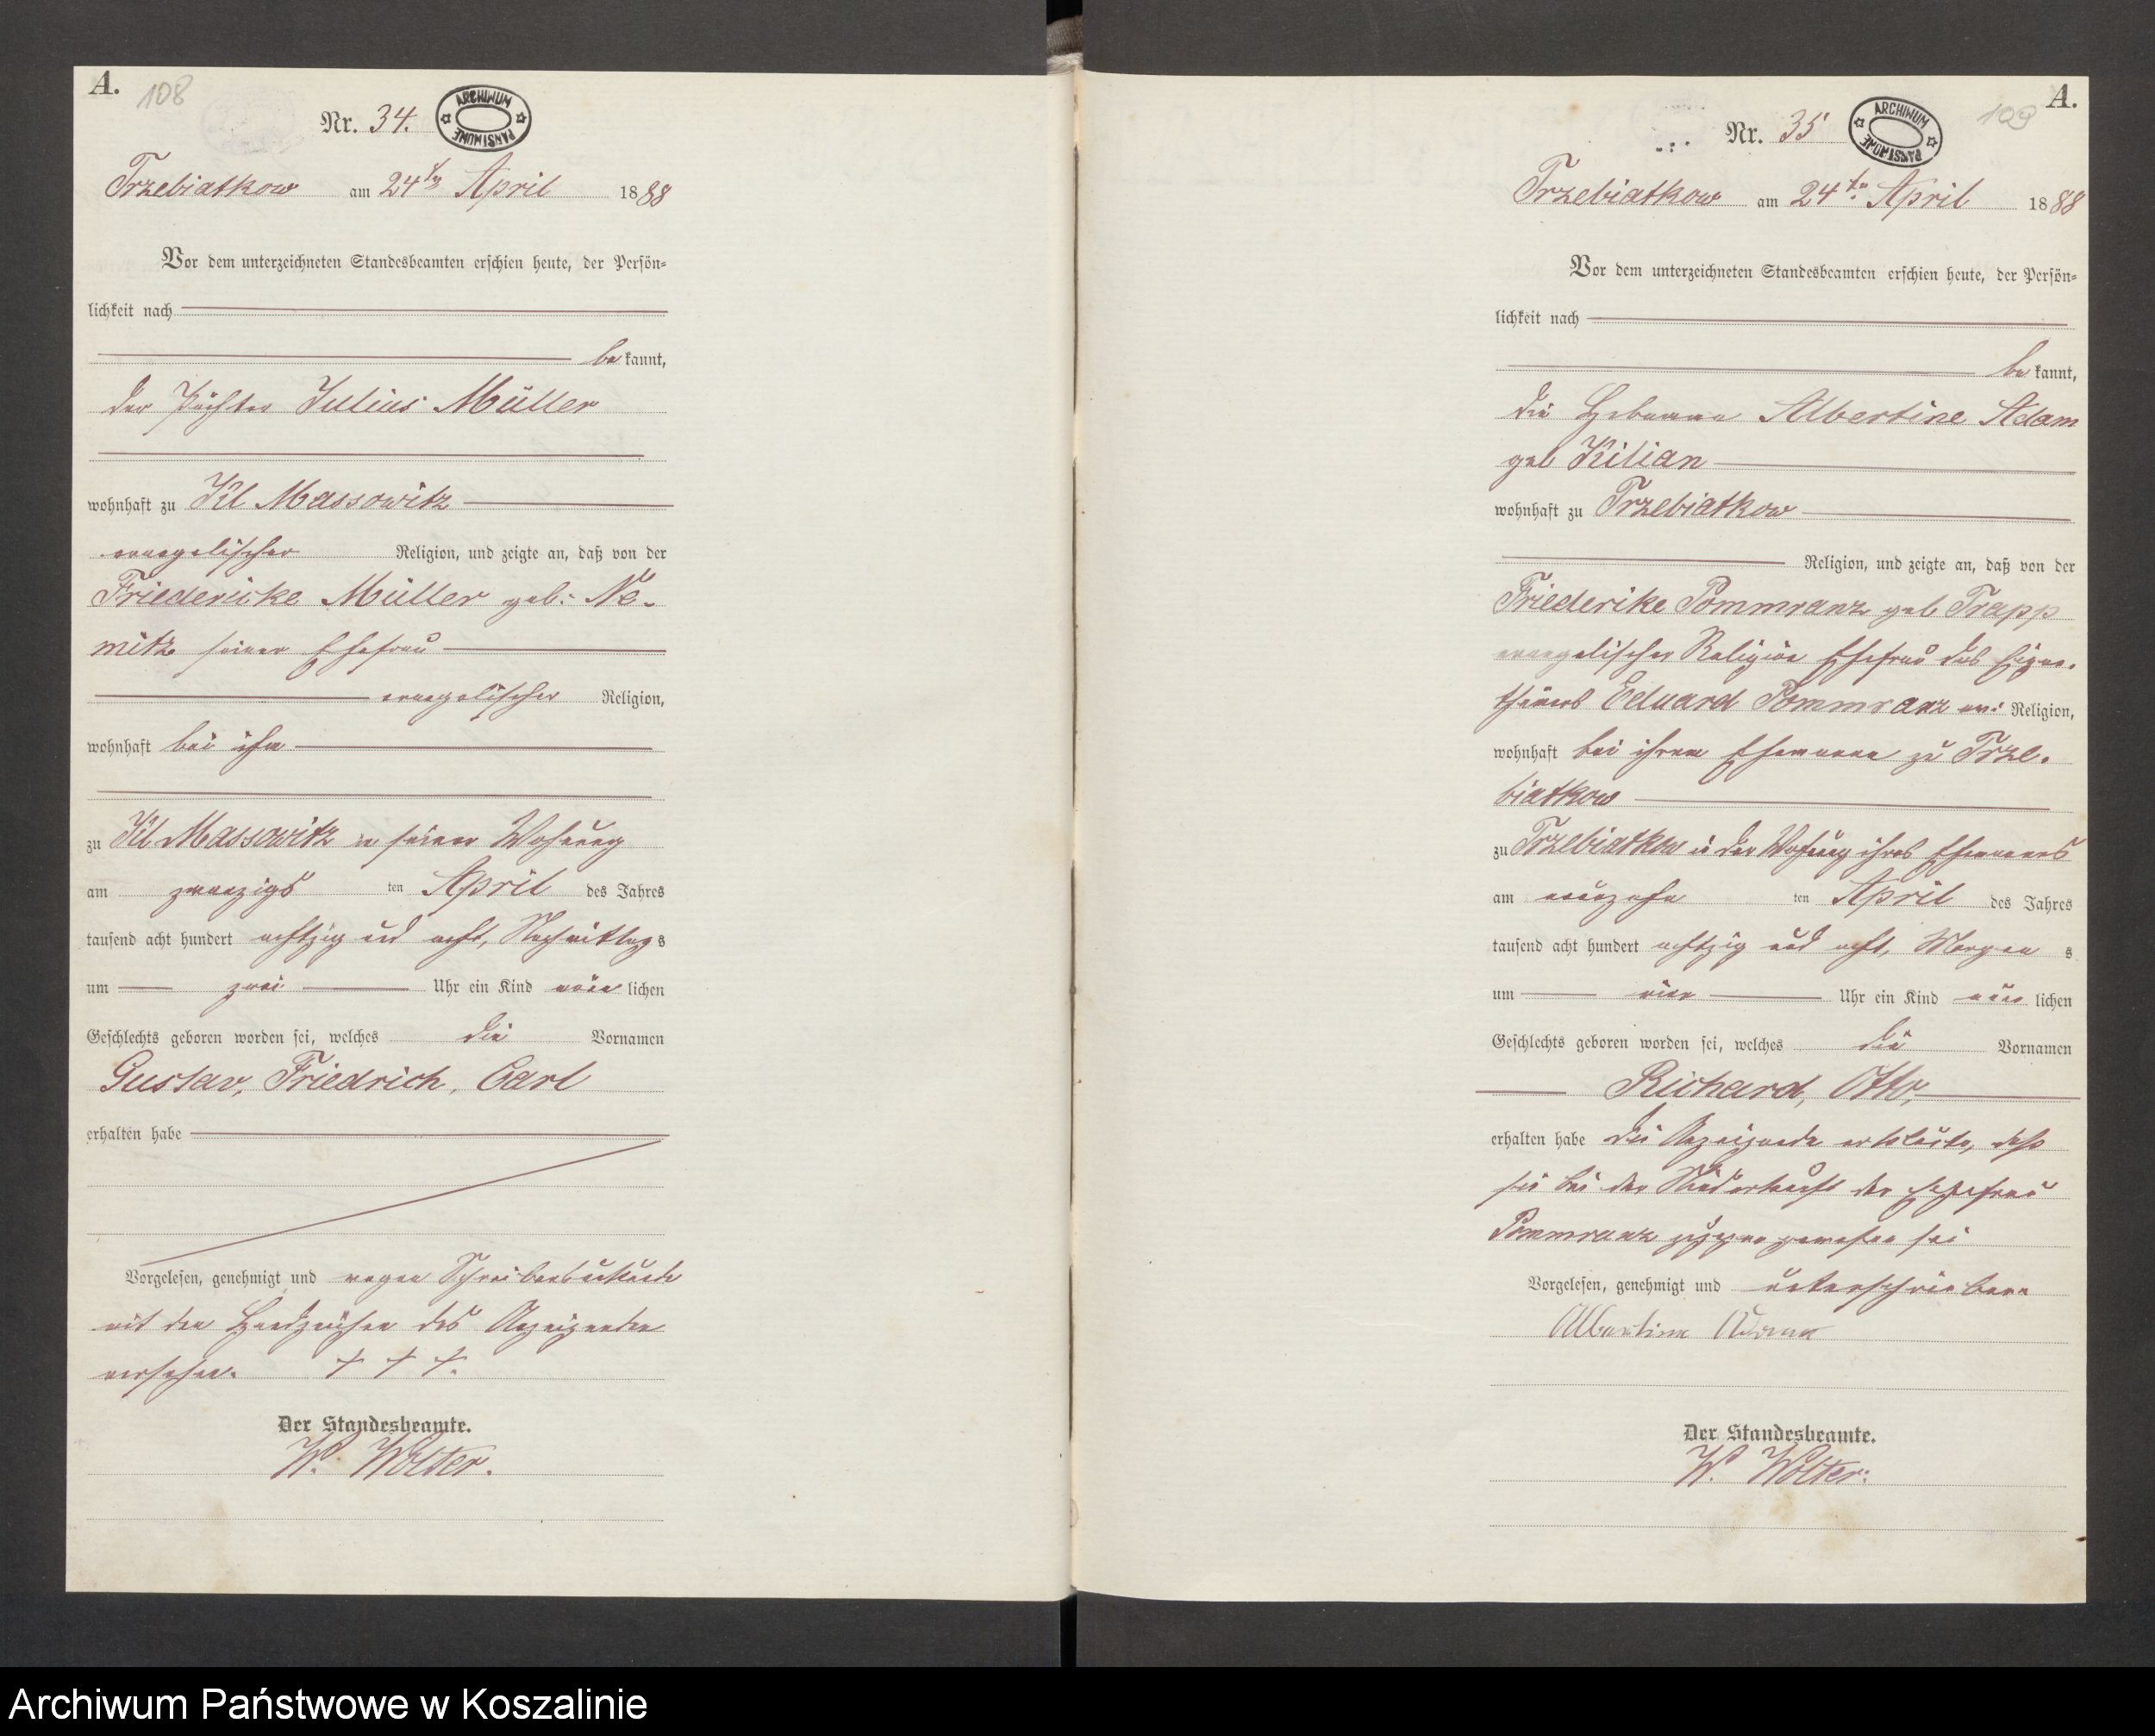 A. 108
Nr. 34.
ARCHIWUM PAŃSTWOWE
Trzebiatkow am 24ten April 1888
Vor dem unterzeichneten Standesbeamten erschien heute, der Persön-
lichkeit nach
be kannt,
der Pächter Julius Müller
wohnhaft zu Kl Massowitz
evangelischer Religion, und zeigte an, daß von der
Friedericke Müller geb: Ne-
mitz seiner Ehefrau
evangelischer Religion,
wohnhaft bei ihm
zu Kl Massowitz in seiner Wohnung
am zwanzigs ten April des Jahres
tausend acht hundert achtzig und acht, Nachmittag s
um zwei Uhr ein Kind männ lichen
Geschlechts geboren worden sei, welches die Vornamen
Gustav, Friedrich, Carl
erhalten habe
Vorgelesen, genehmigt und wegen Schreibensunkunde
mit den Handzeichen des Anzeigenden
versehen. † † †.
Der Standesbeamte.
W. Wolter.
A.
109
Nr. 35
ARCHIWUM PAŃSTWOWE
Trzebiatkow am 24ten April 1888
Vor dem unterzeichneten Standesbeamten erschien heute, der Persön-
lichkeit nach
be kannt,
die Hebamme Albertine Adam
geb Kilian
wohnhaft zu Trzebiatkow
Religion, und zeigte an, daß von der
Friederike Pommranz geb Trapp
evangelischer Religion Ehefrau des Eigen-
thümers Eduard Pommranz ev: Religion,
wohnhaft bei ihrem Ehemanne zu Trze-
biatkow
zu Trzebiatkow in der Wohnung ihres Ehemannes
am neunzehn ten April des Jahres
tausend acht hundert achtzig und acht, Morgen s
um vier Uhr ein Kind män lichen
Geschlechts geboren worden sei, welches die Vornamen
Richard, Otto,
erhalten habe Die Anzeigende erklärte, daß
sie bei der Niederkunft der Ehefrau
Pommranz zugegen gewesen sei
Vorgelesen, genehmigt und unterschrieben
Albertine Adam
Der Standesbeamte.
W. Wolter.
Archiwum Państwowe w Koszalinie